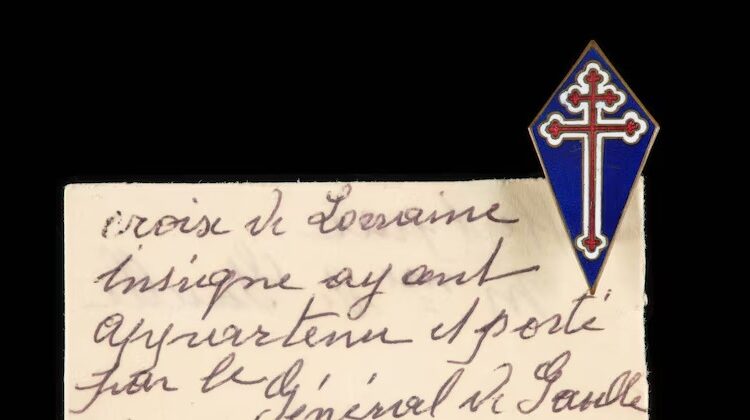 croix de Lorraine
insigne ayant
appartenu et porté
par le Général de Gaulle